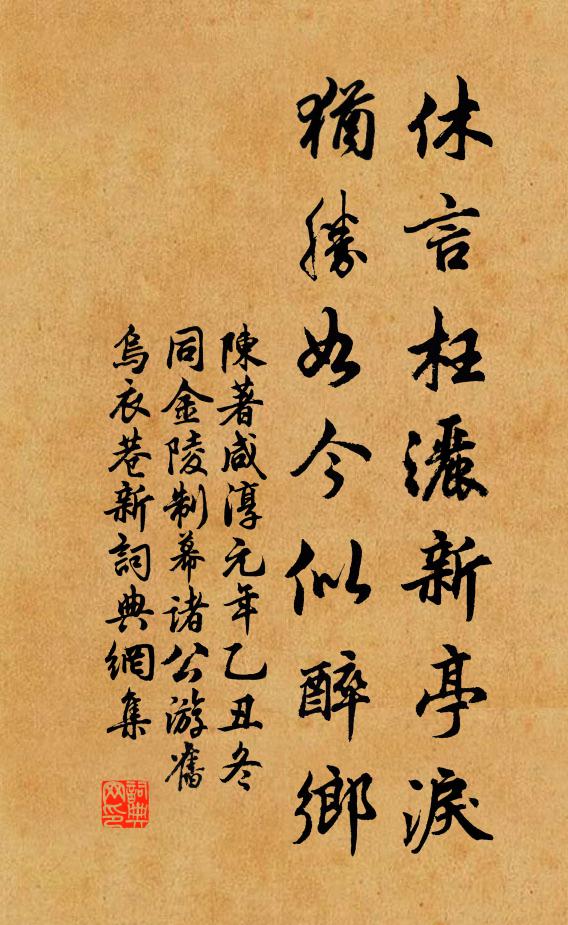 休言枉灑新亭淚
猶勝如今似醉鄉
陳著咸淳元年乙丑冬
同金陵制幕諸公游舊
烏衣巷新詞典網集
詞典網印